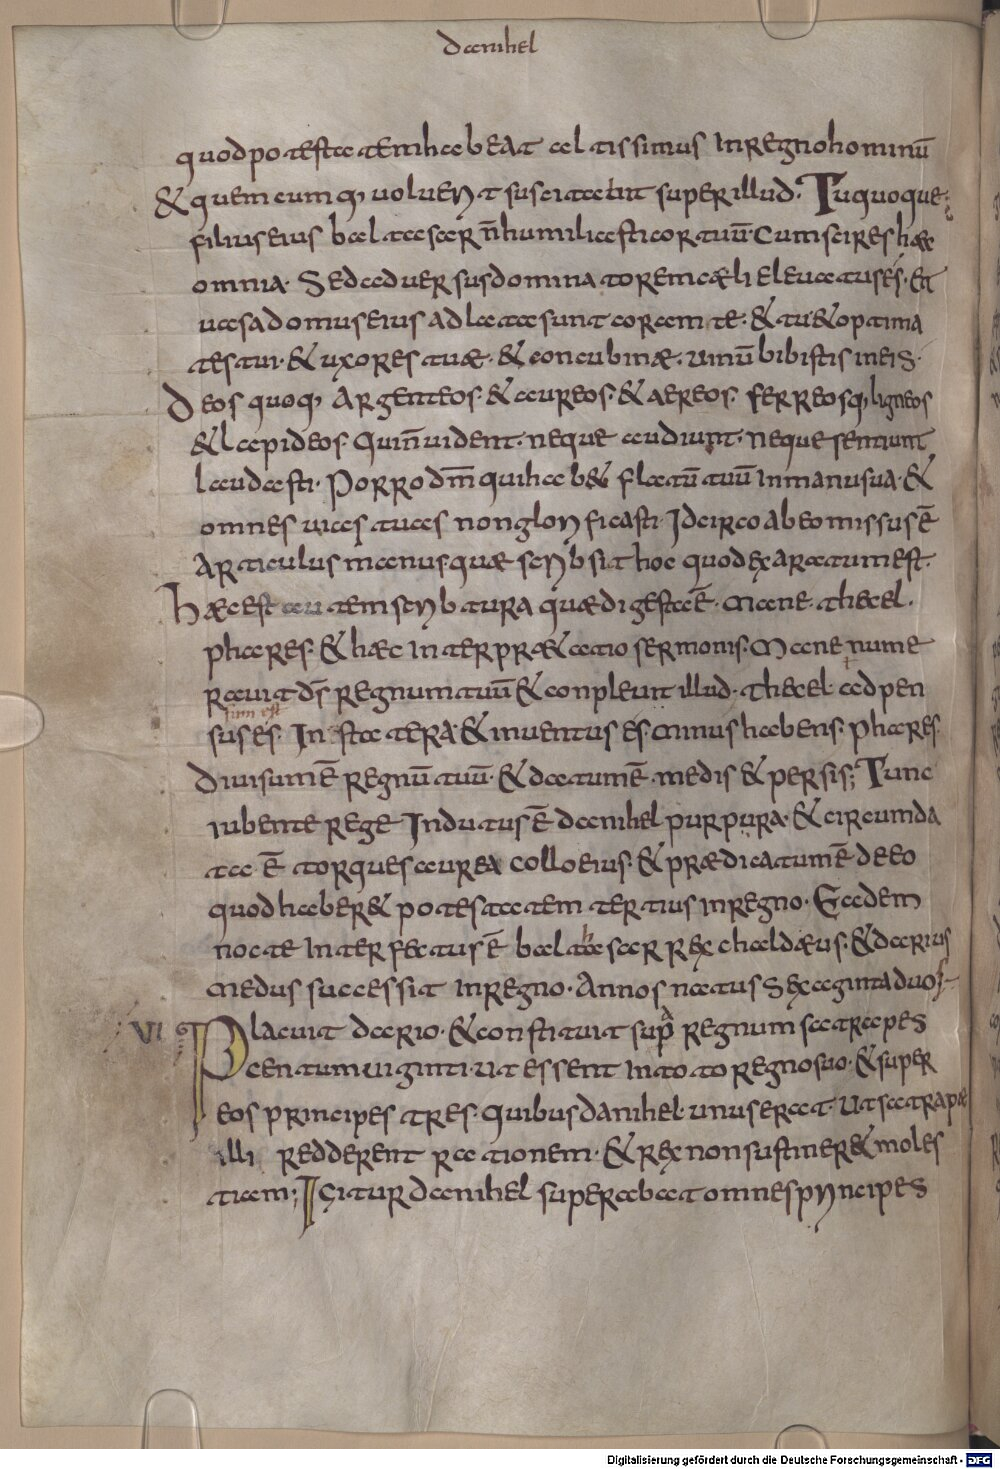 danihel
quod potestatem habeat altissimus in regno hominū
& quemcumq; voluerit suscitabit super illud. Tu quoque
filius eius baltasar ñ humiliasti cor tuū. Cum scires hæc
omnia. Sed adversus dominatorem cæli elevatus es. Et
vasa domus eius adlata sunt coram te. & tu & optima
tes tui. & uxores tuæ. & concubinæ. vinū bibistis in eis.
Deos quoq; argenteos. & aureos. & aereos. ferreosq; ligneos
& lapideos. Qui ñ vident. neque audiunt. neque sentiunt
laudasti. Porro dm̄ qui hab& flatū tuū in manu sua. &
omnes vias tuas non glorificasti. Idcirco ab eo missus ē
articulus manus quæ scribsit hoc quod exaratum est.
Hæc est autem scribtura quæ digesta ē. Mane. thecel.
phares. & hæc interpr&atio sermonis. Mane nume
ravit ds̄ regnum tuū & conplevit illud. thecel. adpen
sus es. In statera & inventus es minus habens. phares.
divisum ē regnū tuū. & datum ē medis & persis; Tunc
iubente rege Indutus ē danihel purpura. & circumda
ta ē torques aurea collo eius. & prædicatum ē de eo
quod haber& potestatem tertius in regno. Eadem
nocte interfectus ē baltasar rex chaldæus. & darius
medus successit in regno. Annos natus sexaginta duos
VI Placuit dario. & constituit supra regnum satrapes
centum viginti. ut essent in toto regno suo. & super
eos principes tres. quibus danihel unus erat. Ut satrapæ
illi redderent rationem. & rex non sustiner& moles
tiam; Igitur danihel superabat omnes principes
Digitalisierung gefördert durch die Deutsche Forschungsgemeinschaft - DFG